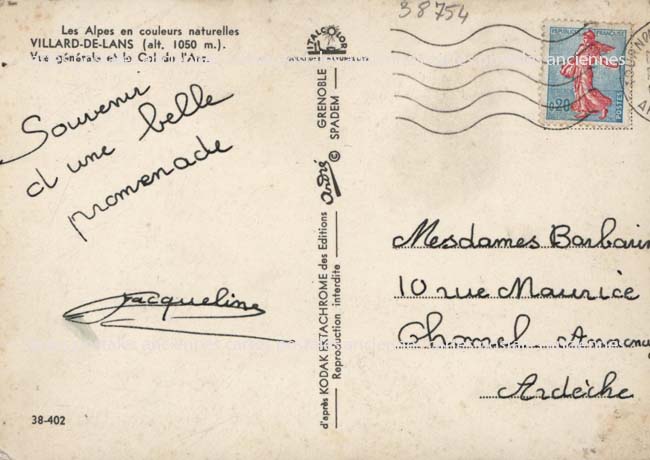 38754
Les Alpes en couleurs naturelles
VILLARD-DE-LANS (alt. 1050 m.).
Vue générale et le Col de l'Arc
Souvenir
d'une belle
promenade
Jacqueline
38-402
d'après KODAK EKTACHROME des Editions André © GRENOBLE
Reproduction interdite SPADEM
REPUBLIQUE FRANÇAISE
0,20
POSTES
Mesdames Barbarin
10 rue Maurice
Ardèche
anciennes cartes postales anciennes